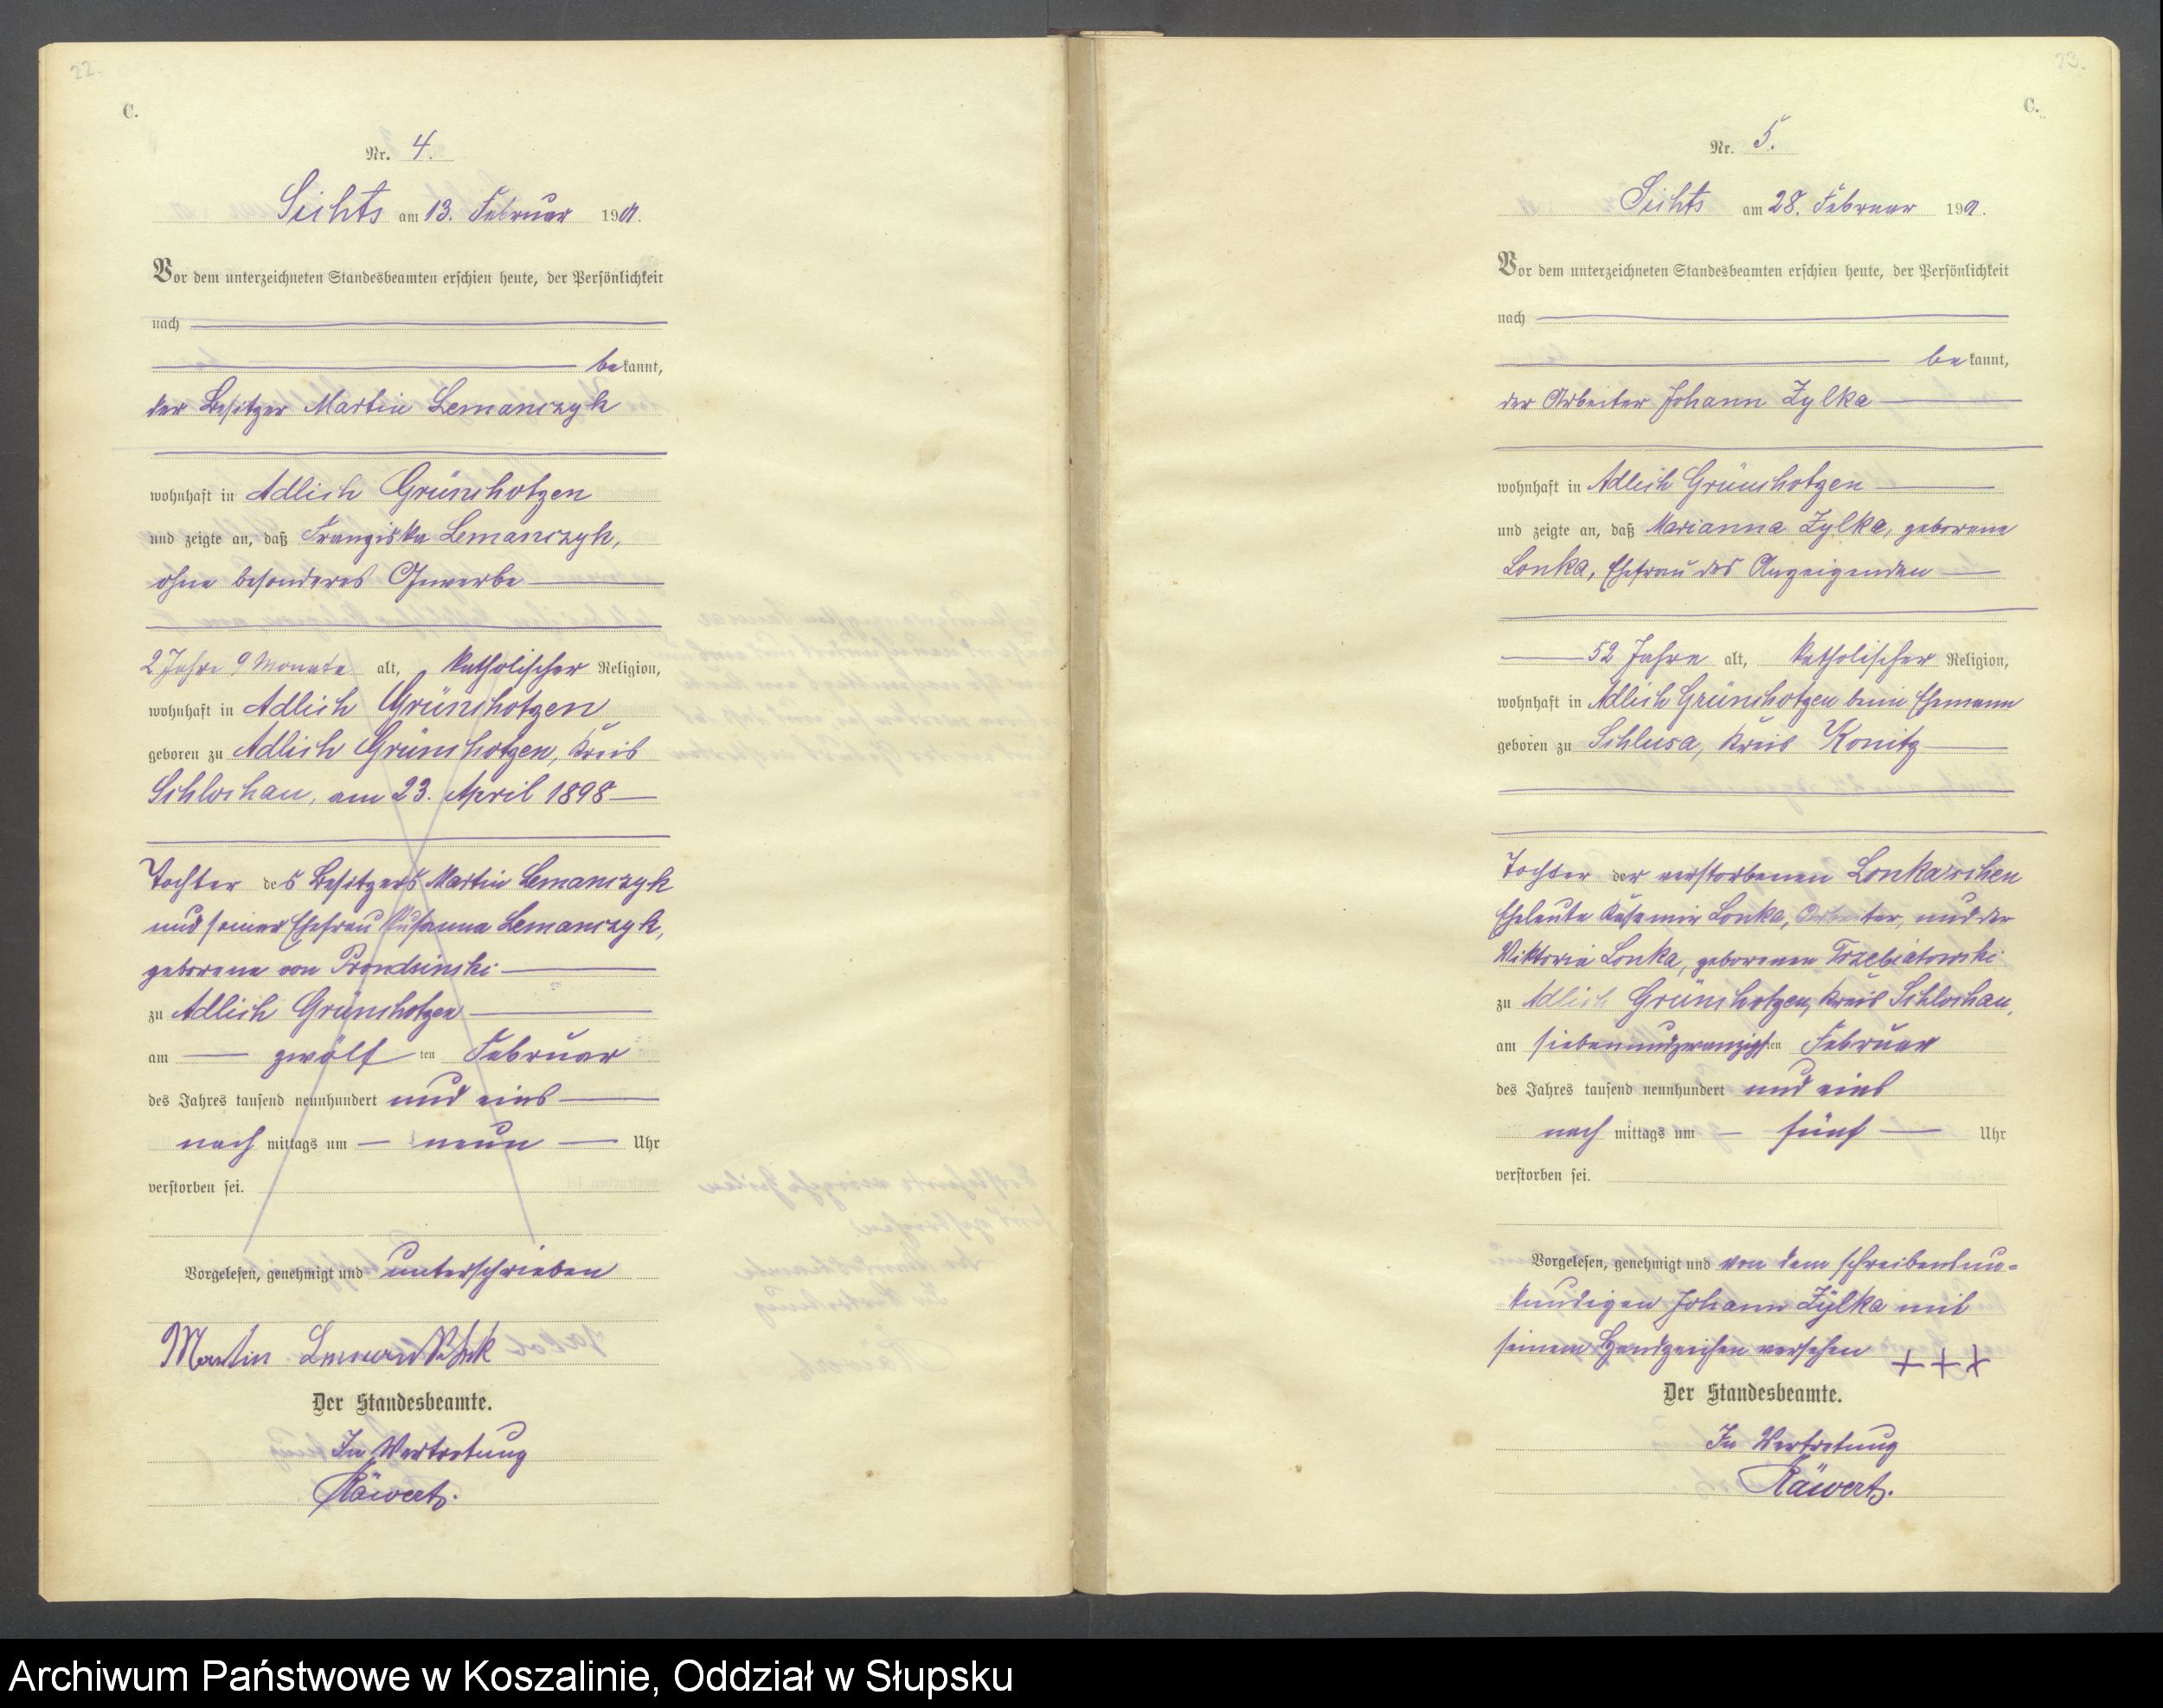 22.
C.
Nr. 4.
Sichts am 13. Februar 1901.
Vor dem unterzeichneten Standesbeamten erschien heute, der Persönlichkeit
nach
bekannt,
der Besitzer Martin Lemanczyk
wohnhaft in Adlich Grünchotzen
und zeigte an, daß Franziska Lemanczyk,
ohne besonderes Gewerbe
2 Jahre 9 Monate alt, katholischer Religion,
wohnhaft in Adlich Grünchotzen
geboren zu Adlich Grünchotzen, Kreis
Schlochau, am 23. April 1898
Tochter des Besitzers Martin Lemanczyk
und seiner Ehefrau Lemanczyk,
geborene von Prondzinski
zu Adlich Grünchotzen
am zwölften Februar
des Jahres tausend neunhundert und eins
nachmittags um neun Uhr
verstorben sei.
Vorgelesen, genehmigt und unterschrieben
Martin
Der Standesbeamte.
In Vertretung
Räwert.
23.
C.
Nr. 5.
Sichts am 28. Februar 1901.
Vor dem unterzeichneten Standesbeamten erschien heute, der Persönlichkeit
nach
bekannt,
der Arbeiter Johann Zylka
wohnhaft in Adlich Grünchotzen
und zeigte an, daß Marianna Zylka, geborene
Lonka, Ehefrau des Anzeigenden
52 Jahre alt, katholischer Religion,
wohnhaft in Adlich Grünchotzen beim Ehemann
geboren zu Schlusa, Kreis Konitz
Tochter der verstorbenen Lonka'schen
Eheleute Kasimir Lonka, Arbeiter, und der
Viktoria Lonka, geborenen Trzebiatowski
zu Adlich Grünchotzen, Kreis Schlochau,
am siebenundzwanzigsten Februar
des Jahres tausend neunhundert und eins
nachmittags um fünf Uhr
verstorben sei.
Vorgelesen, genehmigt und von dem schreibensun-
kundigen Johann Zylka mit
seinem Handzeichen versehen +++
Der Standesbeamte.
In Vertretung
Räwert.
Archiwum Państwowe w Koszalinie, Oddział w Słupsku